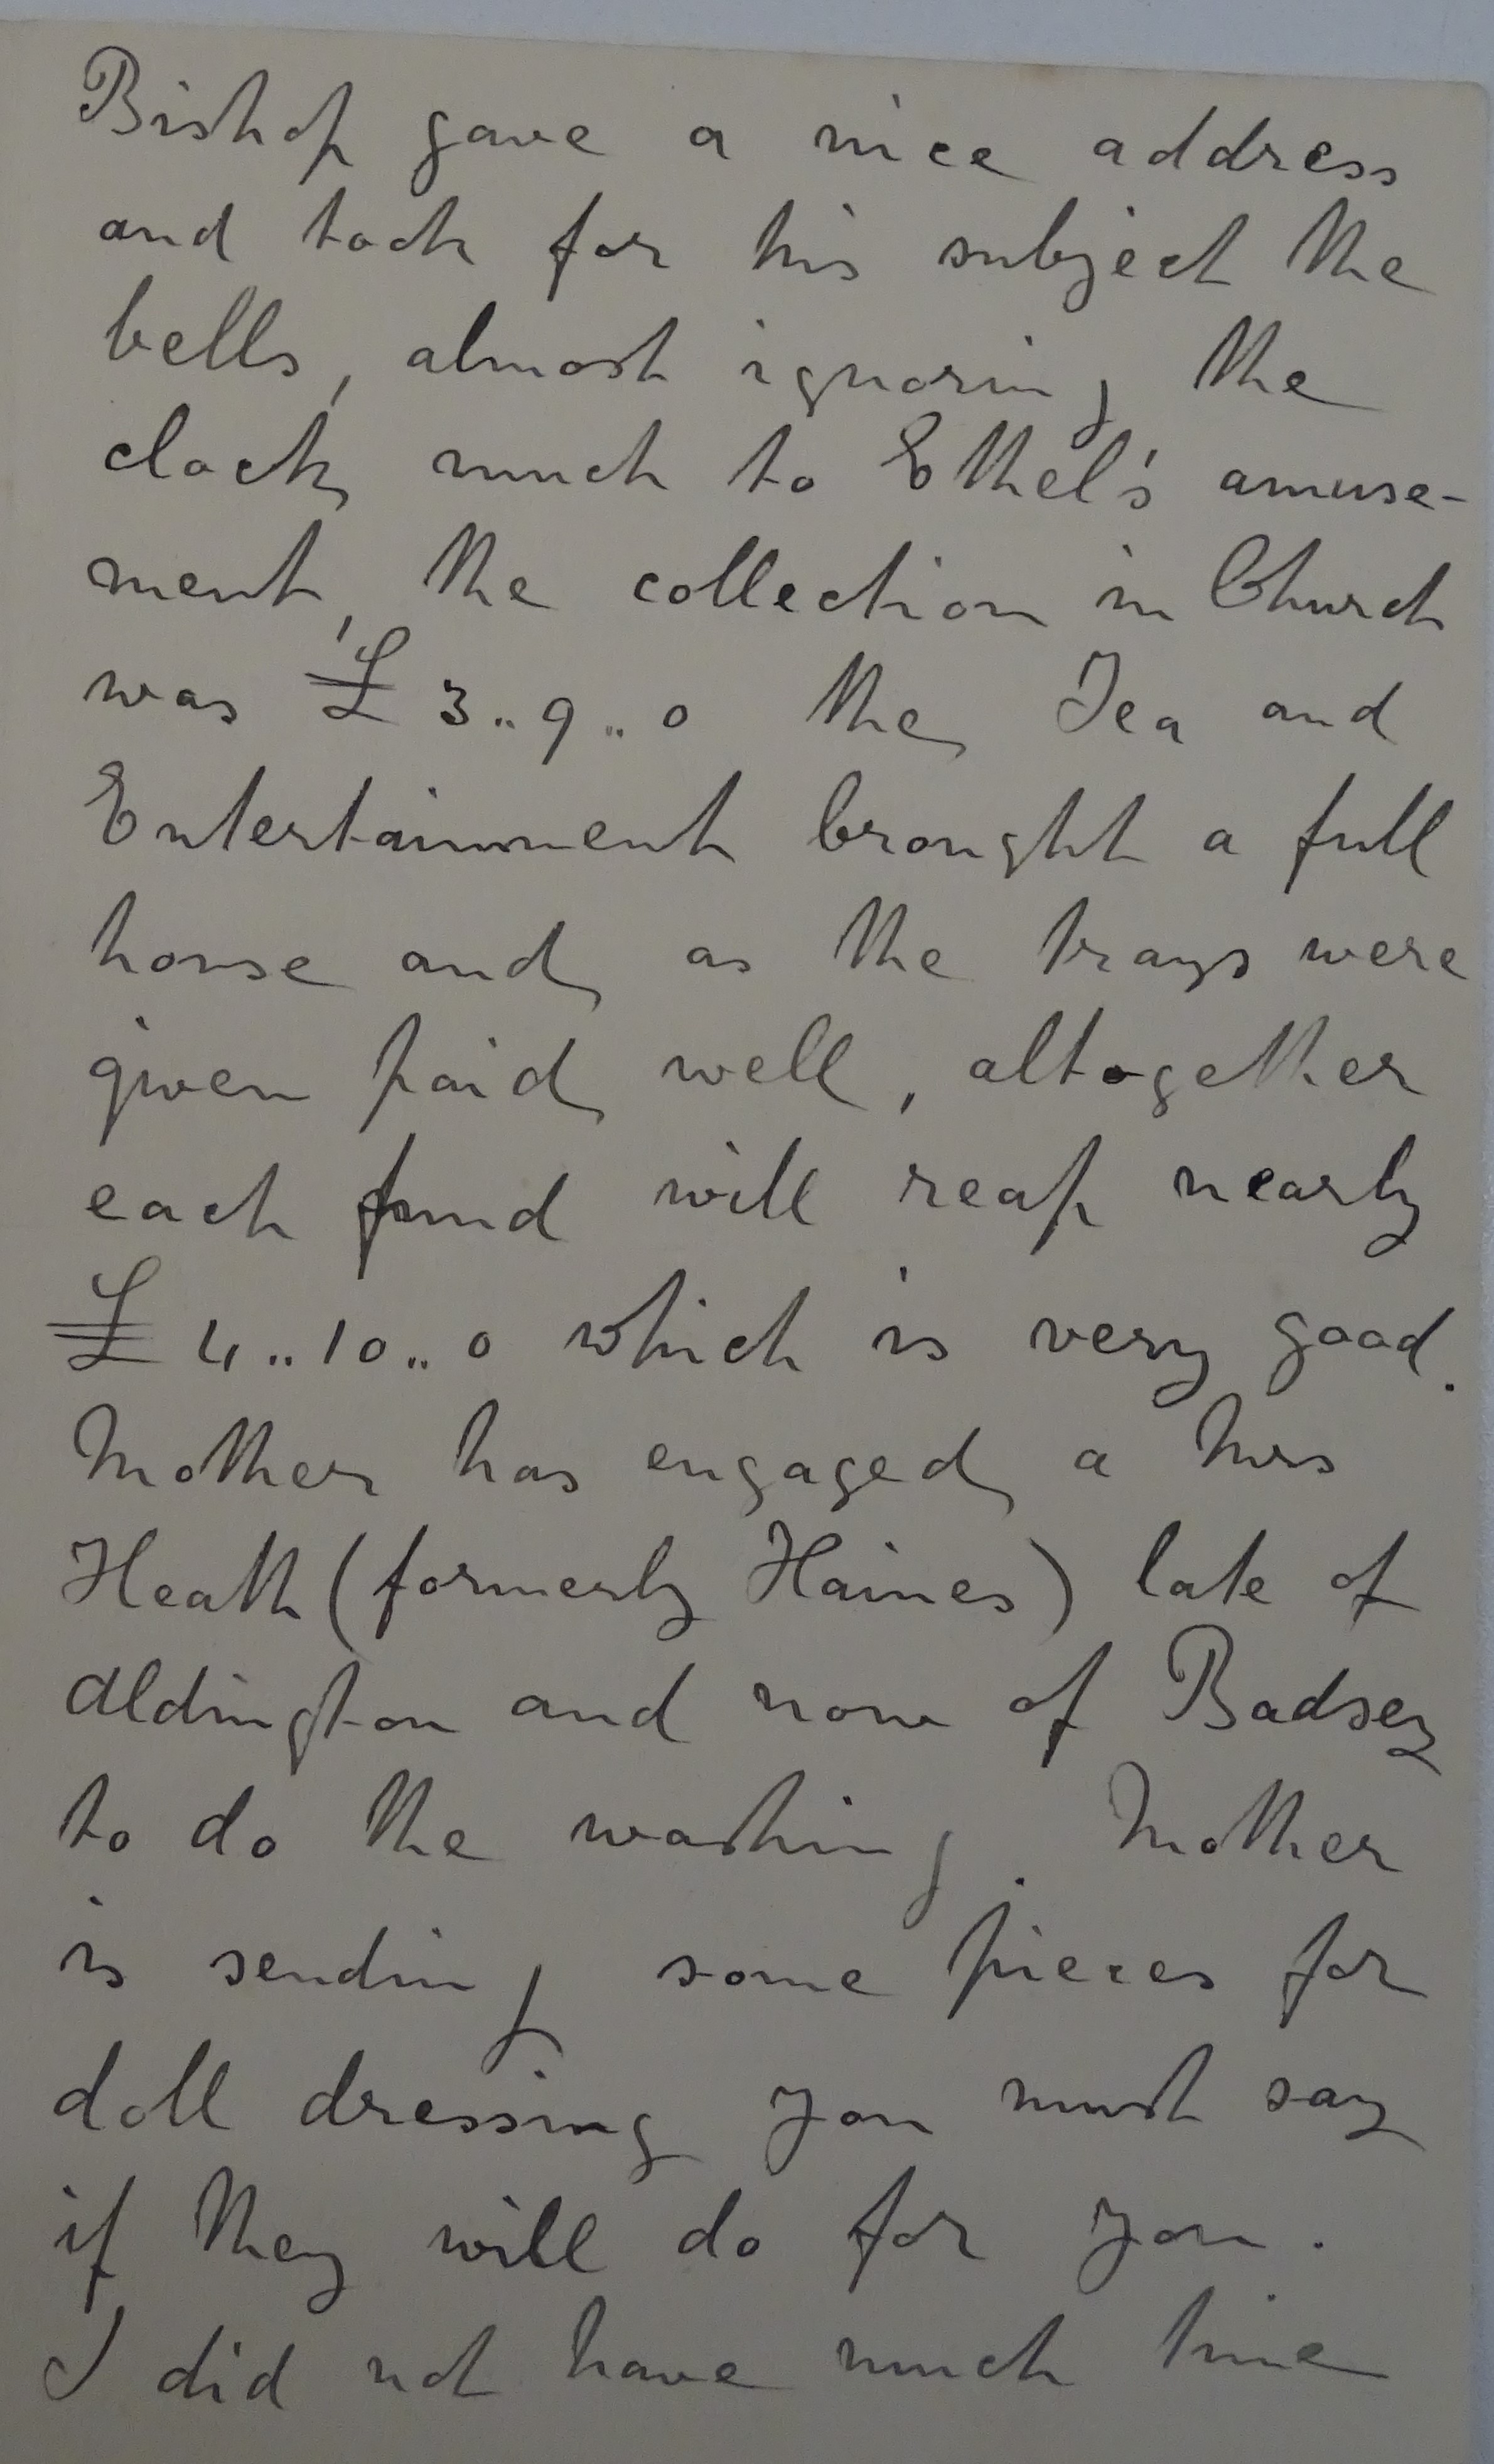 Bishop gave a nice address
and took for his subject the
bells, almost ignoring the
clock, much to Ethel's amuse-
ment, the collection in Church
was £3..9..0 the Tea and
Entertainment brought a full
house and as the trays were
given paid well, altogether
each fund will reap nearly
£4..10..0 which is very good.
Mother has engaged a Mrs
Heath (formerly Haines) late of
Aldington and now of Badsey
to do the washing. Mother
is sending some pieces for
doll dressing you must say
if they will do for you.
I did not have much time